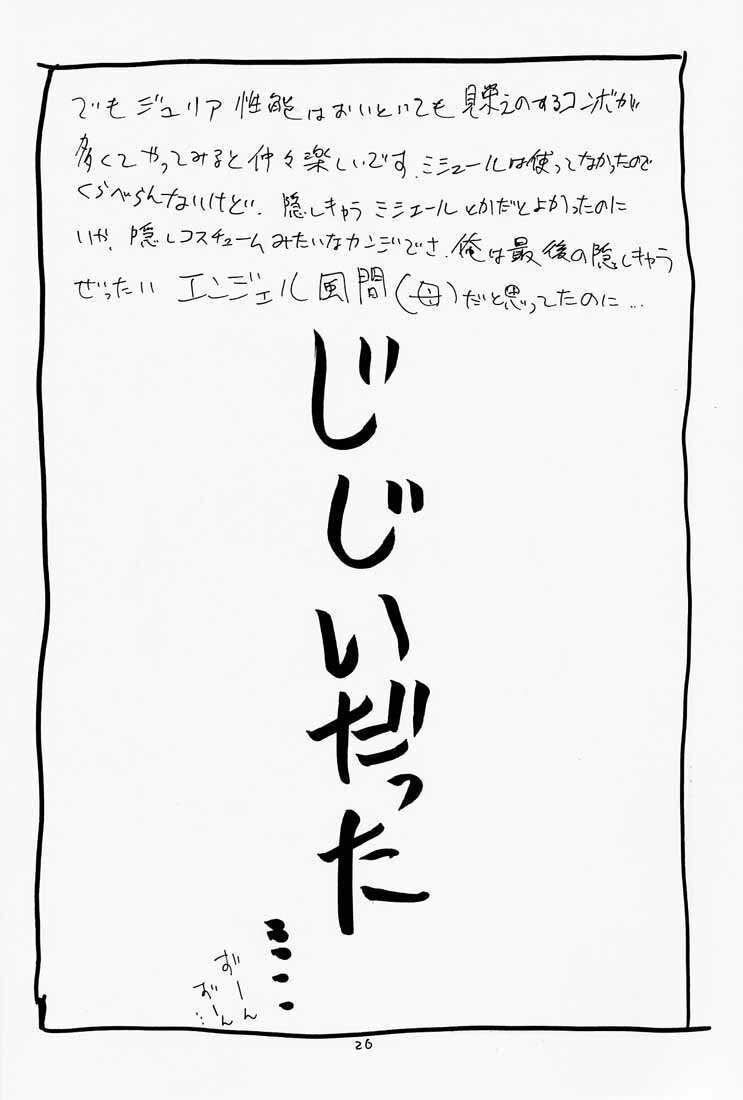 でもジュリア性能はおいといても見栄えのするコンボが
多くてやってみると仲々楽しいです.ミシェールは使ってなかったので
くらべらんないけど.隠しきゃらミシェールとかだとよかったのに
いや、隠しコスチュームみたいなカンジでさ.俺は最後の隠しきゃら
ぜったい エンジェル風間(母)だと思ってたのに...
じじいだった
····
ずーん
ずーん
...
26